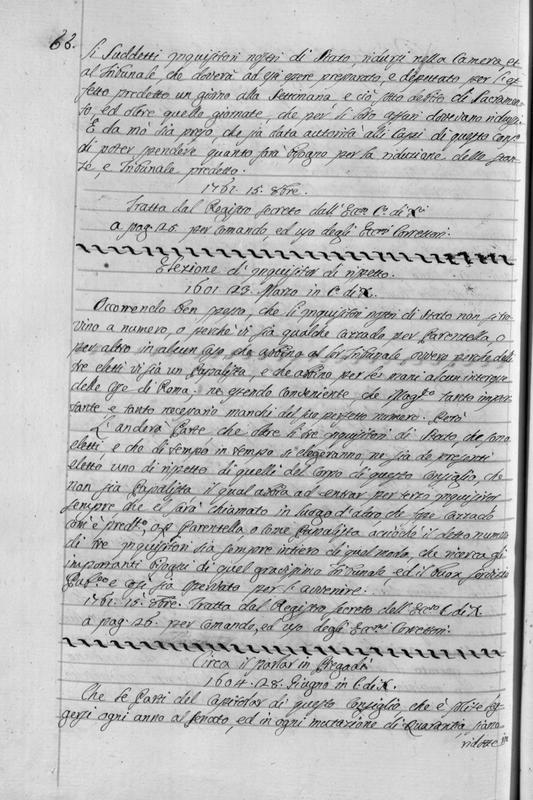 66.
Li Suddetti Inquisitori nostri di Stato, ridursi nella Camera, et
al Tribunale, che doverà ad essi essere preparato, e deputato per l'ef
fetto predetto un giorno alla Settimana, e ciò sotto debito di Sacramen
to, ed oltre quelle giornate, che per li loro affari dovevano ridursi.
E da mò sia preso, che sia data autorità alli Capi di questo Cons.o
di poter spendere quanto farà bisogno per la riduzione delle stan
ze, e Tribunale predetto.
1761. 15. Xbre.
Tratta dal Registro secreto dell' Ecc.o C.o di X.ci
a pag. 26. per comando, ed uso degli Ecc.mi Correttori.
Elezione d' Inquisitor di rispetto.
1601. 23. Marzo in C. di X.
Occorrendo ben spesso, che li Inquisitori nostri di Stato non si tro
vino a numero, o perchè vi sia qualche cazzado per Parentella, o
per altro in alcun caso, che aspetti al lor Tribunale, ovvero perchè delli
tre eletti vi sia un Papalista, e che abbino per le mani alcun interesse
delle Cose di Roma; nè essendo conveniente, che Mag.to tanto impor
tante, e tanto necessario manchi del suo perfetto numero. Però
L' anderà Parte, che oltre li tre Inquisitori di Stato, che sono
eletti, e che di tempo in tempo si eleggeranno, ne sia de presenti
eletto uno di rispetto di quelli del Corpo di questo Consiglio, che
non sia Papalista, il qual abbia ad entrar per terzo Inquisitor
sempre che el sarà chiamato in luogo d' altro che fosse cazzado
com' è predt.o, o p Parentella, o come Papalista, acciochè il detto numero
di tre Inquisitori sia sempre intiero di quel modo, che ricerca gli
importanti bisogni di quel gravissimo Tribunale, ed il buon servizio
Pub.co e così sia osservato per l' avvenire.
1761. 15. Xbre. Tratta dal Registro secreto dell' Ecc.o C. di X.
a pag. 26. per Comando, ed uso degli Ecc.mi Correttori.
Circa il parlar in Pregadi
1604. 28. Giugno in C. di X.
Che le Parti del Capitolar di questo Consiglio, che è solito leg
gersi ogni anno al Senato, ed in ogni mutazione di Quarantia, siano
ridotte in